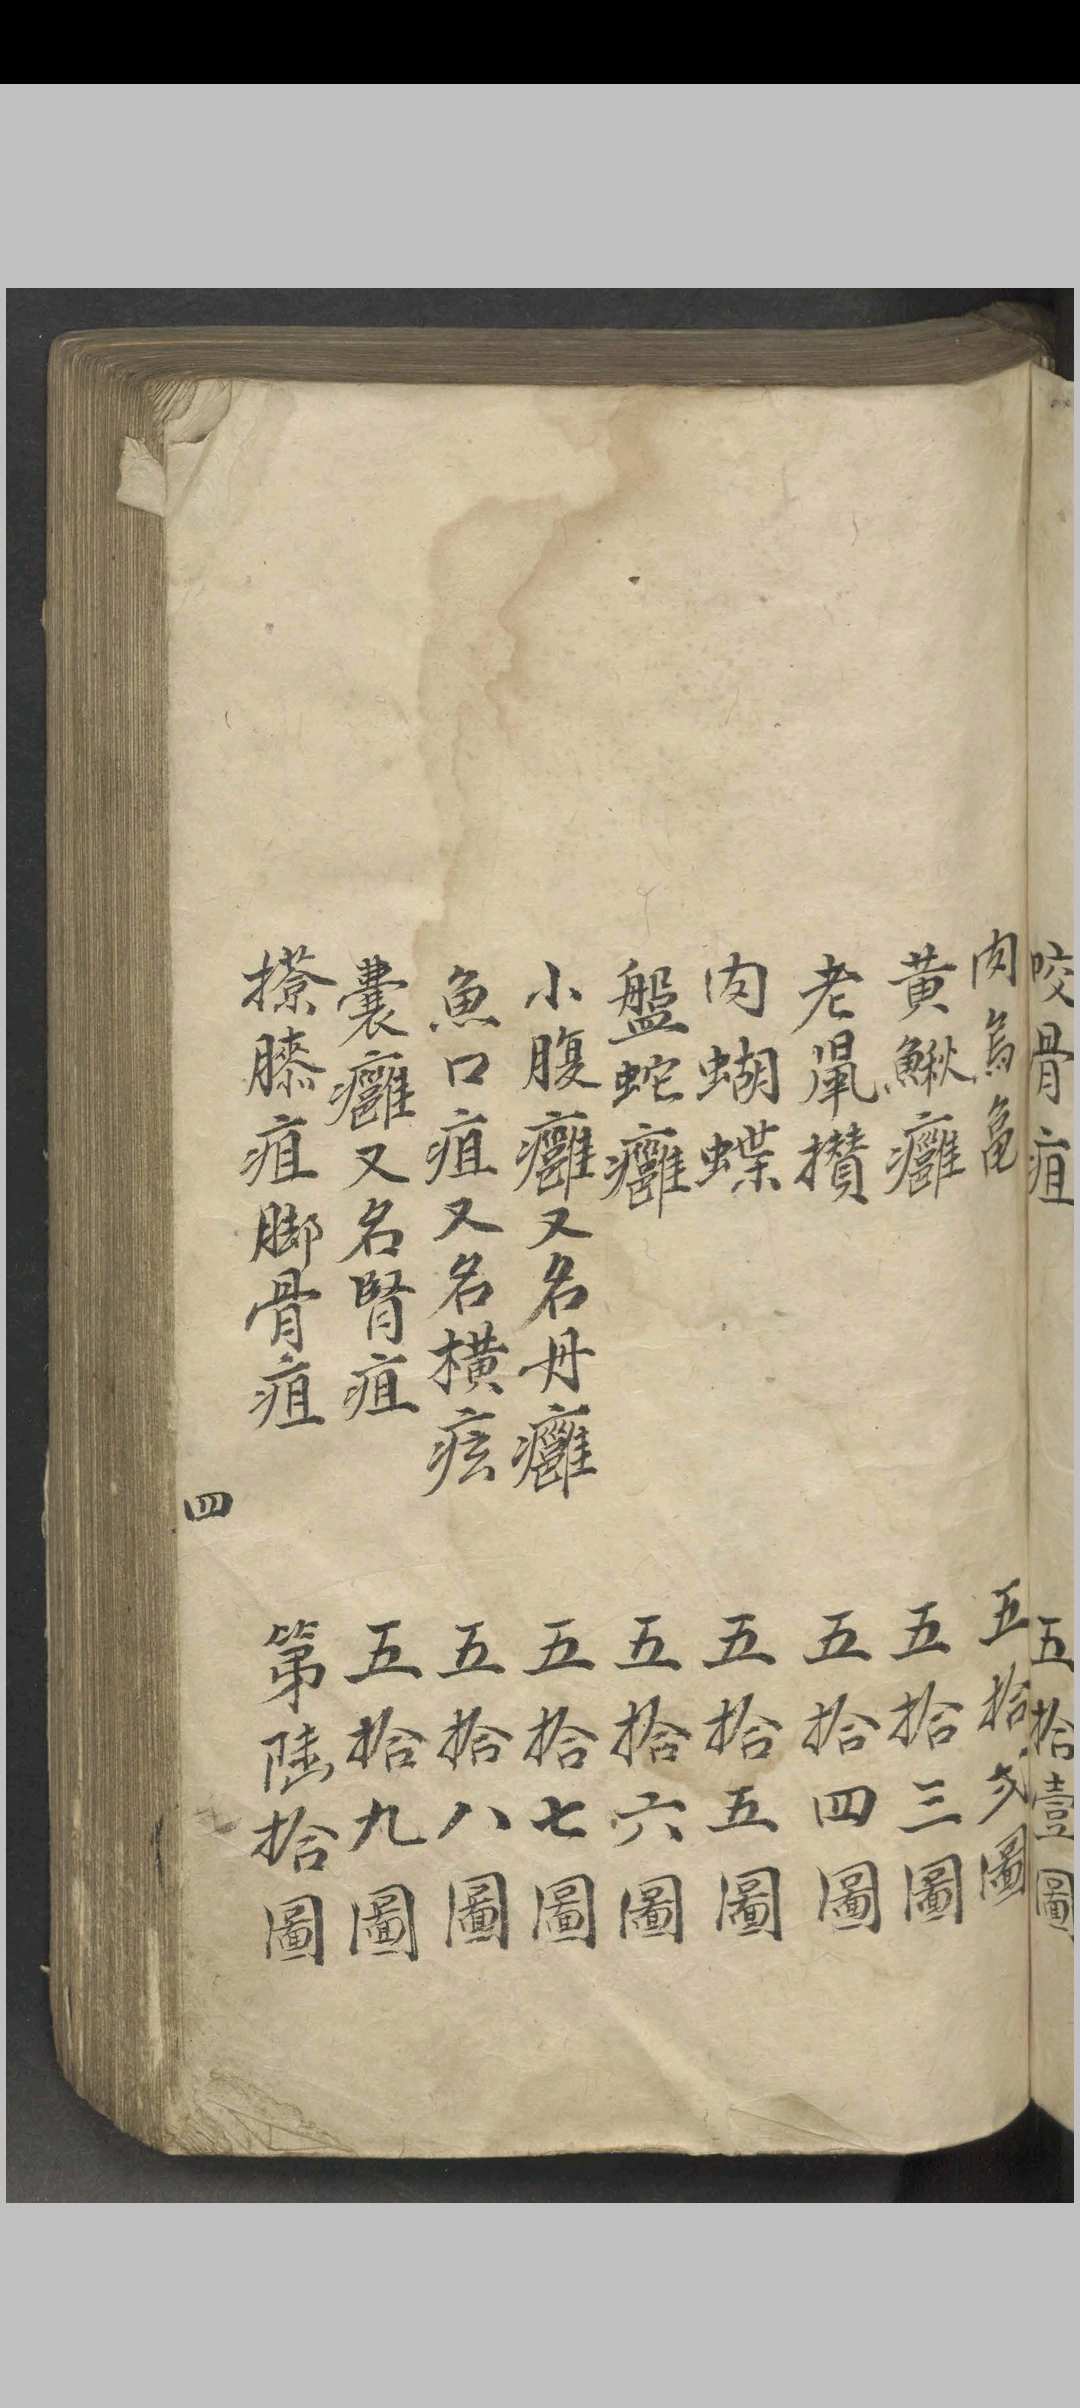 咬骨疽 五拾壹圖
肉烏龟 五拾弍圖
黃鰍癰 五拾三圖
老鼠攅 五拾四圖
肉蝴蝶 五拾五圖
盤蛇癰 五拾六圖
小腹癰又名丹癰 五拾七圖
魚口疽又名橫痃 五拾八圖
囊癰又名腎疽 五拾九圖
膝疽脚骨疽 第陸拾圖
四